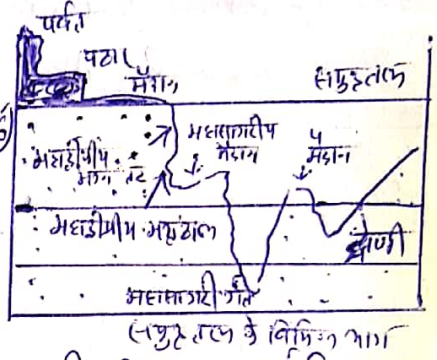 पर्वत
पठार
मैदान
समुद्रतल
महासागरीय
मैदान
महाद्वीपीय
मग्न तट
मैदान
महाद्वीपीय मग्नढाल
द्रोणी
महासागरी गर्त
समुद्रतल के विभिन्न भाग